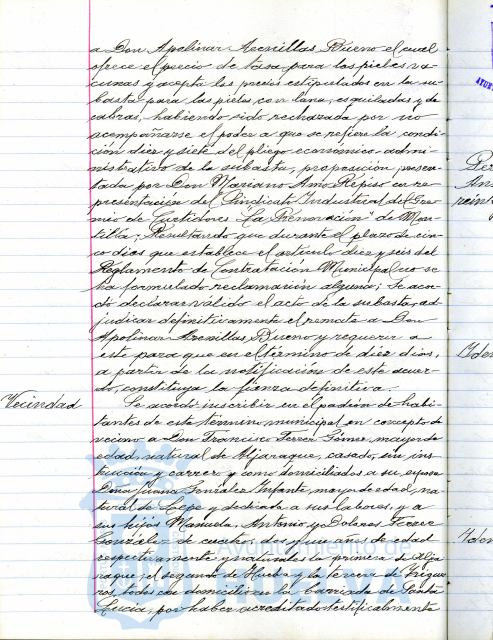 a Don Apolinar Arenillas Bueno el cual
ofrece el precio de tasa para las pieles va-
cunas y acepta los precios estipulados en la su-
basta para las pieles con lana, esquiladas y de
cabras, habiendo sido rechazada por no
acompañarse el poder a que se refiere la condi-
ción diez y siete del pliego económico-admi-
nistrativo de la subasta, proposición presen-
tada por Don Mariano Amo Repiso en re-
presentación del Sindicato Industrial del Gre-
mio de Curtidores "La Renovación" de Mon-
tilla; Resultando que durante el plazo de cin-
co días que establece el artículo diez y seis del
Reglamento de Contratación Municipal no se
ha formulado reclamación alguna; Se acor-
dó declarar válido el acto de la subasta, ad-
judicar definitivamente el remate a Don
Apolinar Arenillas Bueno y requerir a
este para que en el término de diez días,
a partir de la notificación de este acuer-
do, constituya la fianza definitiva.
Vecindad
Se acordó inscribir en el padrón de habi-
tantes de este término municipal en concepto de
vecino a Don Francisco Ferrer Gómez, mayor de
edad, natural de Aljaraque, casado, sin ins-
trucción y carrero y como domiciliados a su esposa
Doña Juana González Infante, mayor de edad, na-
tural de Lepe y dedicada a sus labores, y a
sus hijos Manuela, Antonio y Dolores Ferrer
González de cuatro, dos y un años de edad
respectivamente y naturales la primera de Alja-
raque, el segundo de Huelva y la tercera de Trigue-
ros, todos con domicilio en la barriada de Santa
Lucía, por haber acreditado certificalmente
Ayuntamiento de